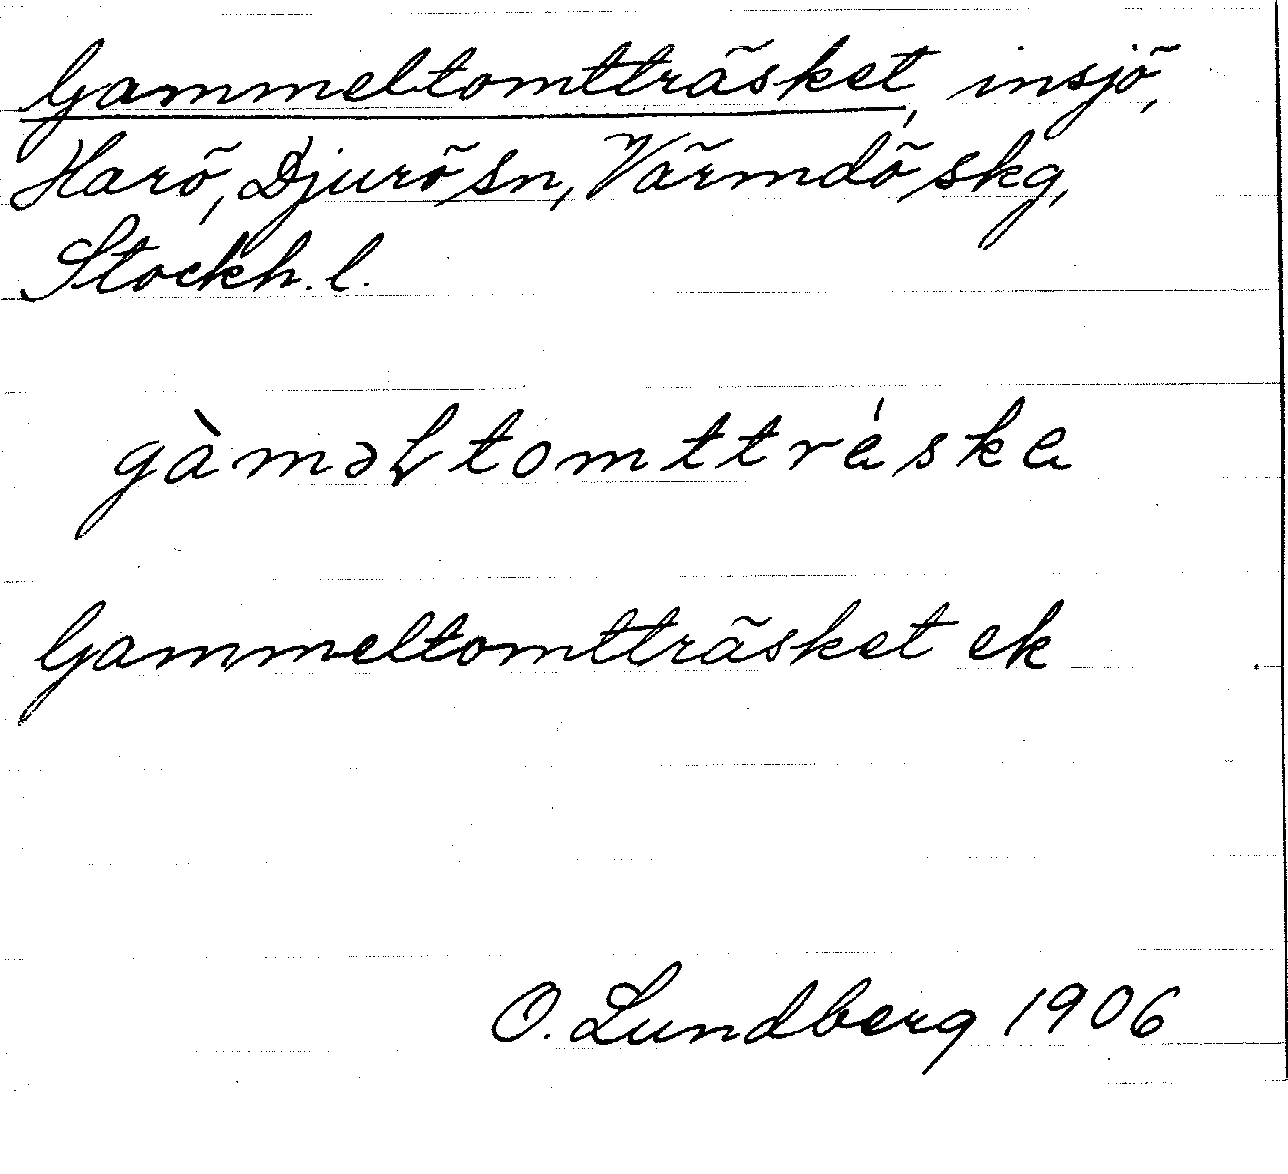 Gammeltomtträsket, insjö,
Harö, Djurö sn, Värmdö skg,
Stockh. l.
gàməɫtomttrǽska
Gammeltomtträsket ek
O. Lundberg 1906